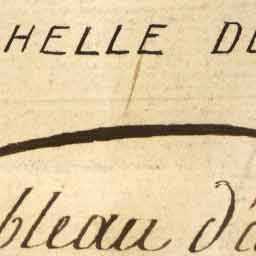 HELLE DE
bleau d'a